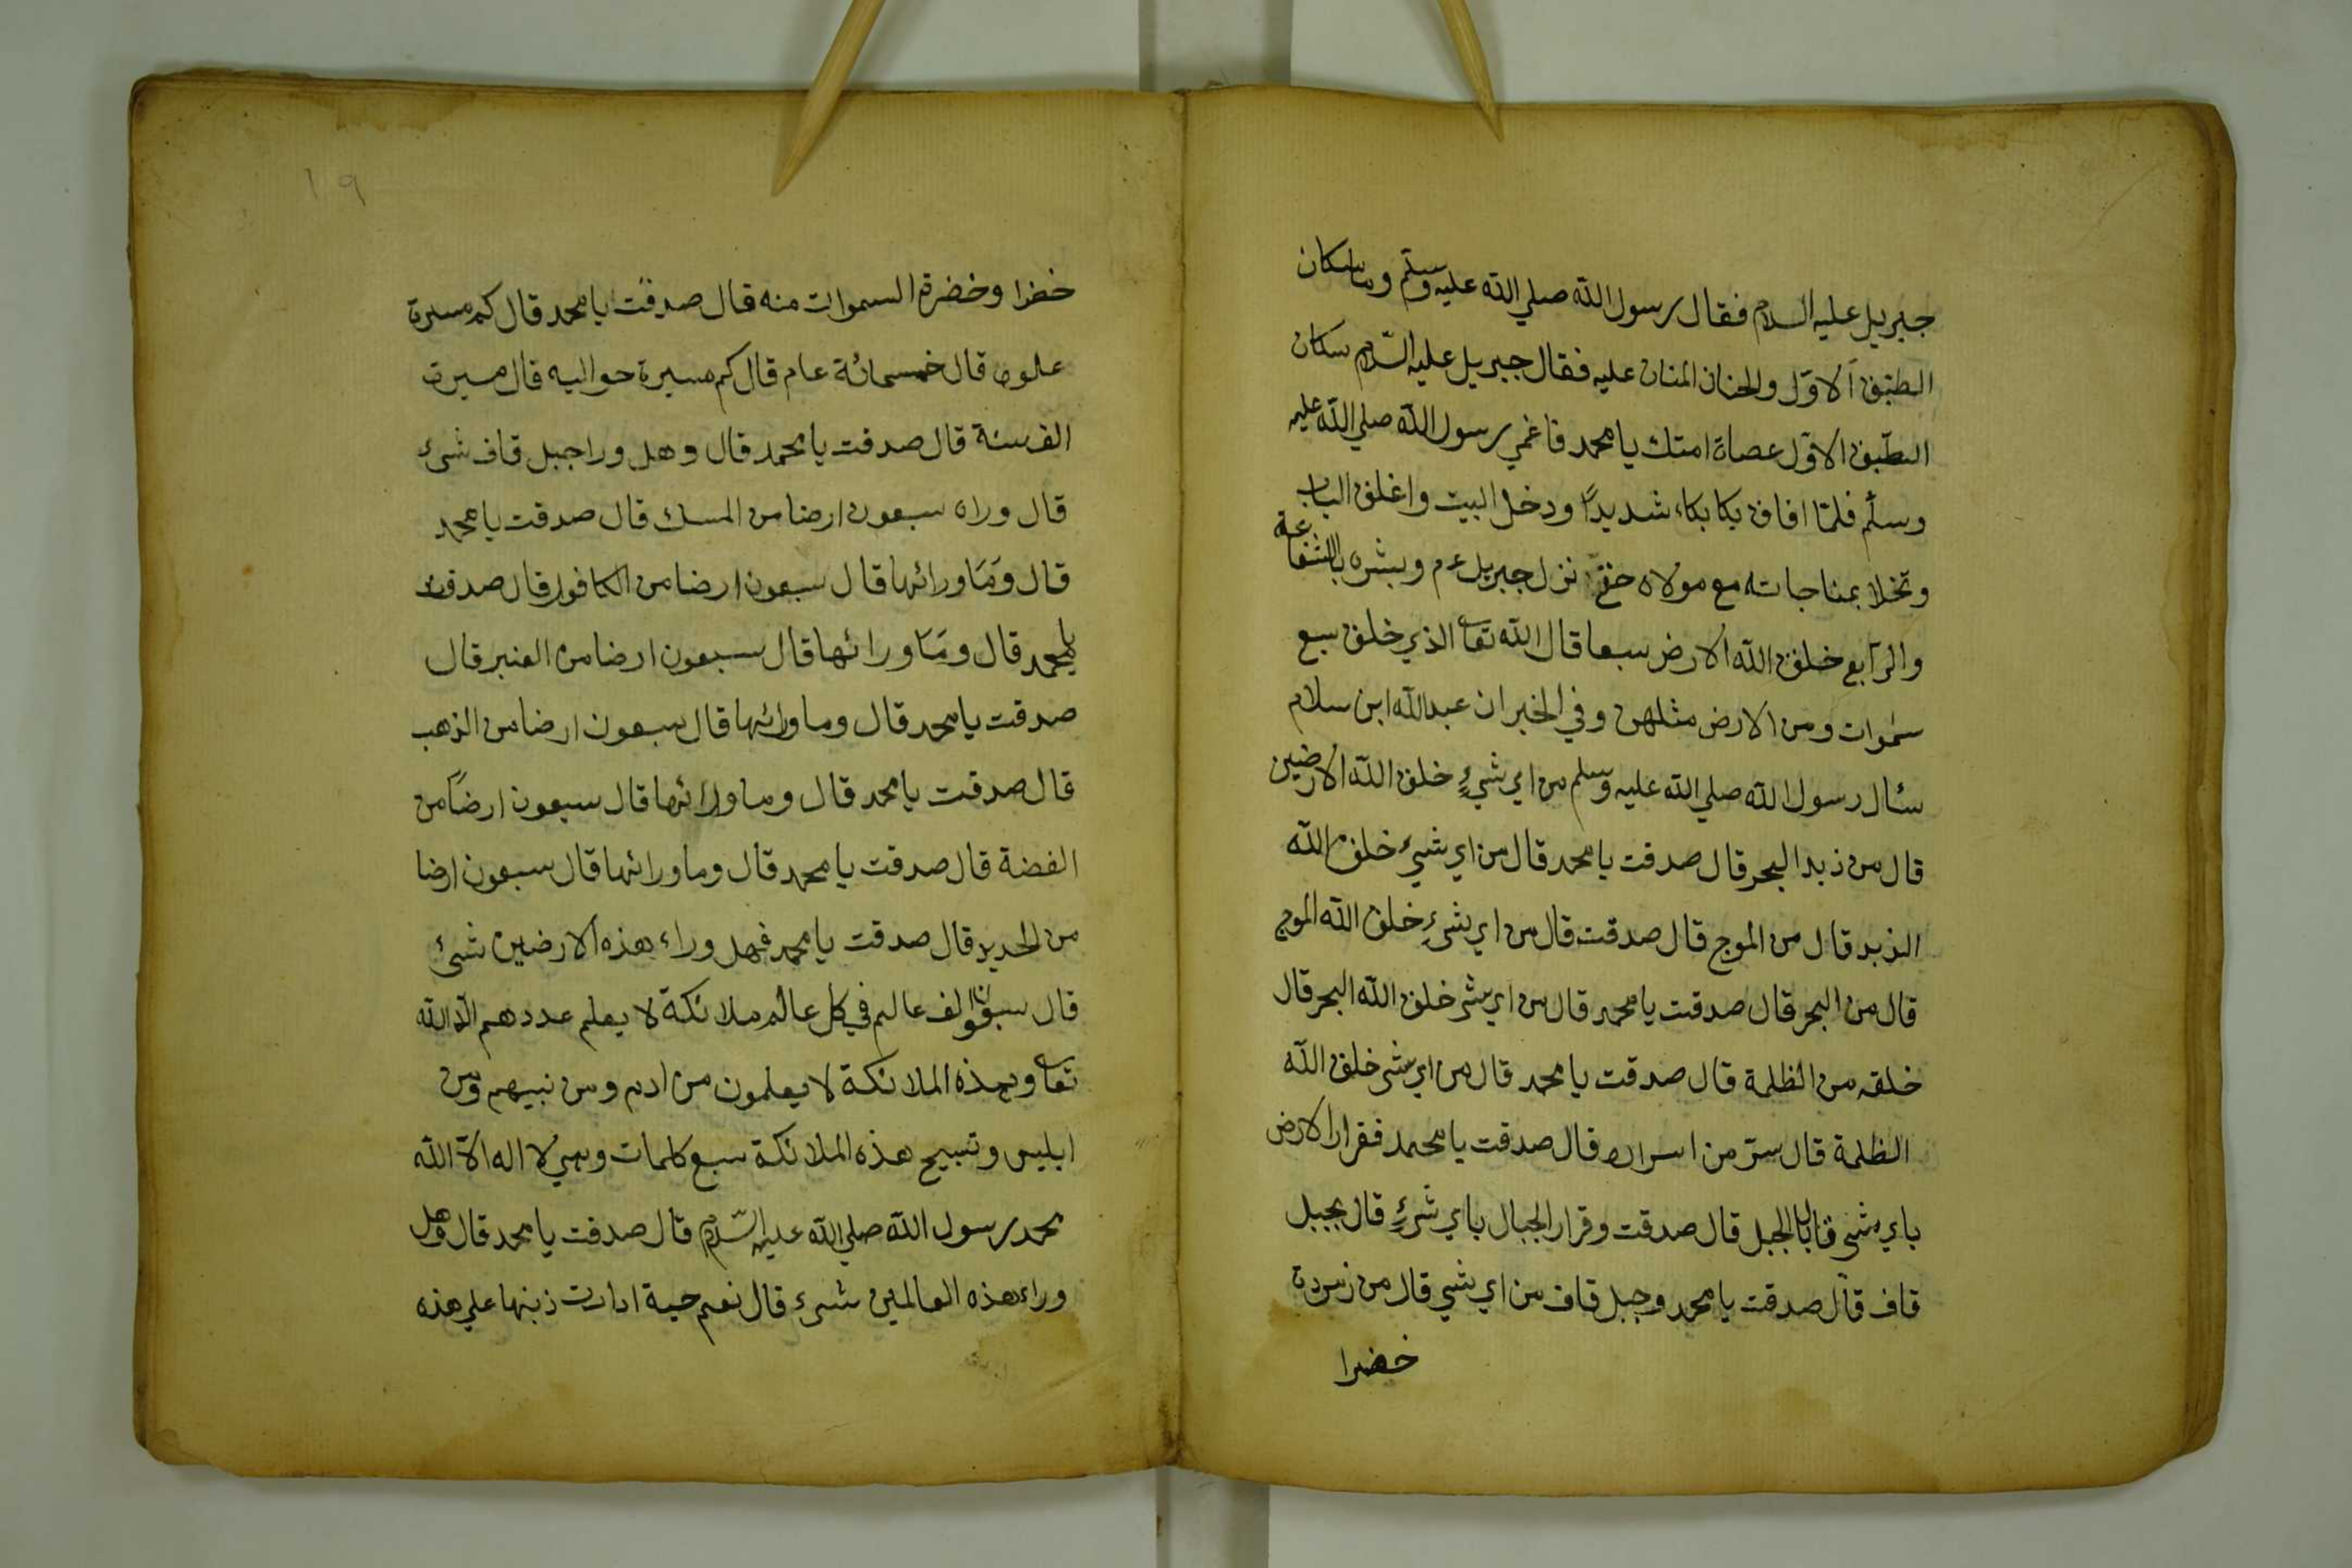 جبريل عليه السلام فقال رسول الله صلي الله عليه وسلّم وما سكان
الطبق الاوّل والحنان المنان عليه فقال جبريل عليه السّلام سكان
الطبّق الاوّل عصاة امتك يا محمد فاغمي رسول الله صلي الله عليه
وسلّم فلمّا افاق بكا بكاء شديدًا ودخل البيت واغلق الباب
وتخلا بمناجاته مع مولاه حتي نزل جبريل ءم وبشره بالشفاعة
والرّابع خلق الله الارض سبعا قال الله تعا الذي خلق سبع
سموات ومن الارض مثلهن وفي الخبر ان عبد الله ابن سلام
سئال رسول الله صلي الله عليه وسلم من اي شيءٍ خلق الله الارضين
قال من زبد البحر قال صدقت يا محمد قال من اي شيء خلق الله
الزبد قال من الموج قال صدقت قال من اي شيءٍ خلق الله الموج
قال من البحر قال صدقت يا محمد قال من اي شي خلق الله البحر قال
خلقه من الظلمة قال صدقت يا محمد قال من اي شي خلق الله
الظلمة قال سرّ من اسراره قال صدقت يا محمد فقرار الارض
باي شي قال بالجبل قال صدقت وقرار الجبال باي شيءٍ قال بجبل
قاف قال صدقت يا محمد وجبل قاف من اي شي قال من زمردة
خضرا
١٩
خضرا وخضرة السموات منه قال صدقت يا محمد قال كم مسيرة
علوه قال خمسمائة عام قال كم مسيرة حواليه قال مسيرت
الف سنة قال صدقت يا محمد قال وهل ورا جبل قاف شيء
قال وراه سبعون ارضا من المسك قال صدقت يا محمد
قال ومَا ورائها قال سبعون ارضا من الكافور قال صدقت
يا محمد قال ومَا ورائها قال سبعون ارضا من العنبر قال
صدقت يا محمد قال وما ورائها قال سبعون ارضا من الذهب
قال صدقت يا محمد قال وما ورائها قال سبعون ارضًا من
الفضة قال صدقت يا محمد قال وما ورائها قال سبعون ارضا
من الحديد قال صدقت يا محمد فهل وراء هذه الارضين شيء
قال سبعون الف عالم في كل عالم ملائكة لا يعلم عددهم الّا الله
تعا وهذه الملائكة لا يعلمون من ادم ومن نبيهم ومن
ابليس وتسبيح هذه الملائكة سبع كلمات وهي لا اله الاّ الله
محمد رسول الله صلي الله عليه السّلام قال صدقت يا محمد قال وهل
وراء هذه العالمين شيء قال نعم حية ادارت ذنبها علي هذه